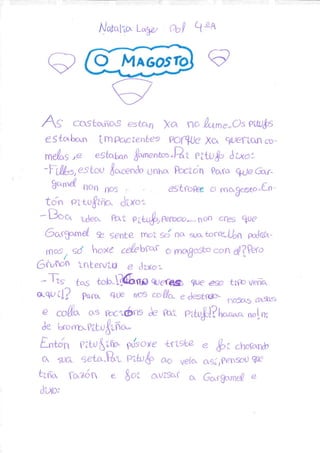 Natalia Lage Pol 4ºA
O MAGOSTO
As castañas estan xa no lume. Os Pitufos
estaban impacientes porque xa querían co-
melas, e estaban famentos. Pai Pitufo dixo:
- Fillos, estou facendo unha Poción para que Gar-
gamel non nos estropee o magosto. En-
tón Pitufiña dixo:
- Boa idea Pai Pitufo, pero... non cres que
Gargamel se sente moi só na sua torre. Non podía-
mos, só hoxe celebrar o magosto con el? Pero
Gruñón interviu e dixo:
- Tis tas tola! Como queres que ese tipo veña
aquí!? Para que nos colla e destroce nosas casas
e colla as pocións de Pai Pitufo!? nin
de broma Pitufiña.
Entón Pitufiña púsose triste e foi chorando
a súa seta. Pai Pitufo ao vela así, pensou que
tiña razón e foi avisar a Gargamel e
dixo: